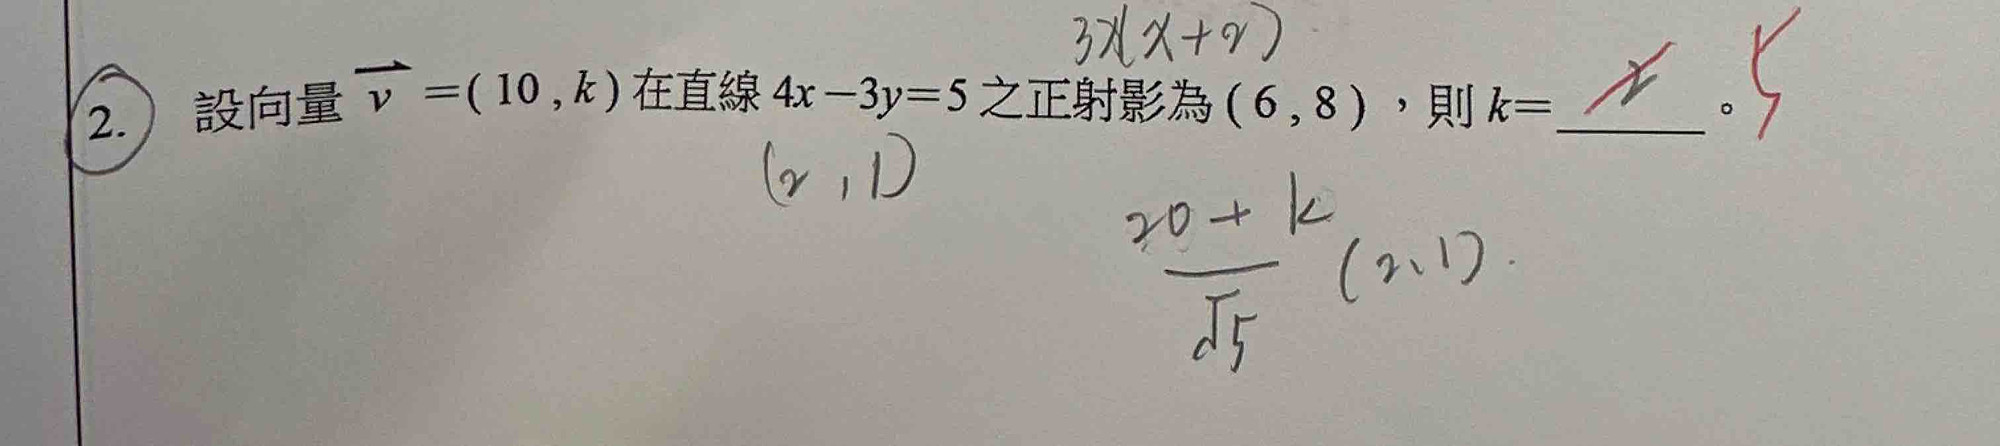 3x(x+2)
2. 設向量 v =( 10 , k ) 在直線 4x−3y=5 之正射影為 ( 6 , 8 ) ,則 k= 2 。 5
(2 , 1)
20 + k
√5
(2、1).